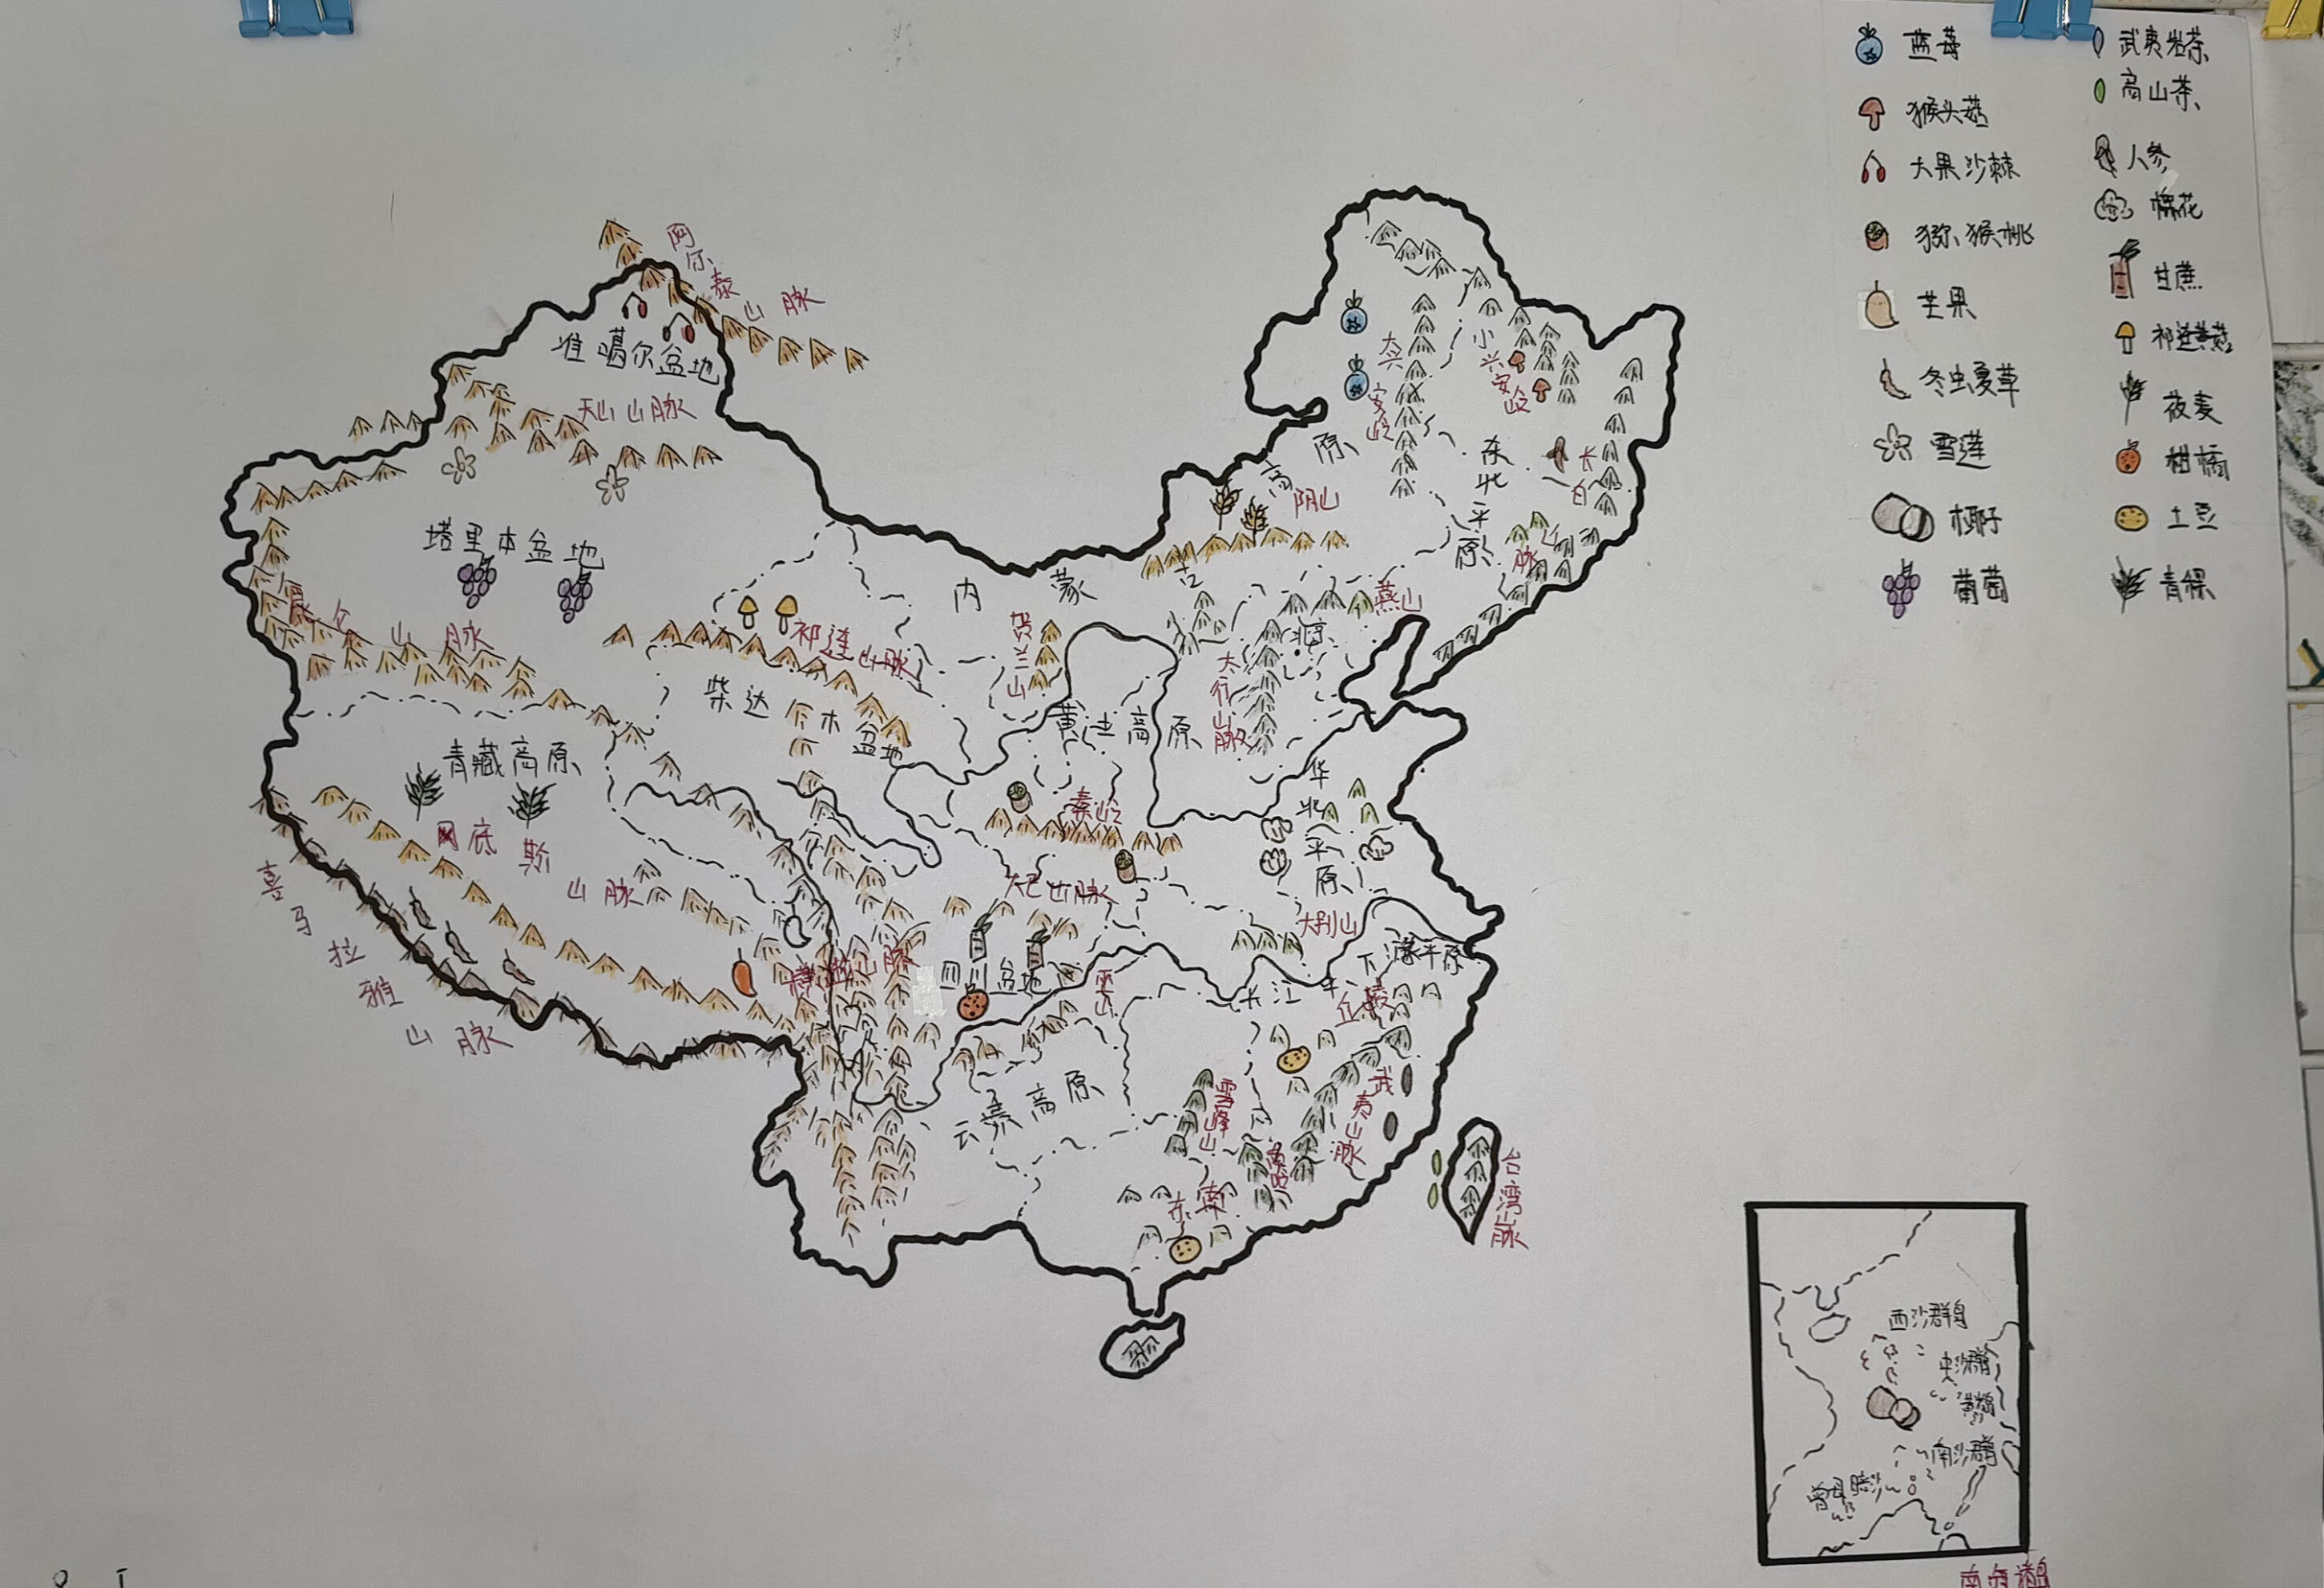 蓝莓
猴头菇
大果沙棘
猕猴桃
芒果
冬虫夏草
雪莲
椰子
葡萄
武夷岩茶
高山茶
人参
棉花
甘蔗
祁连黄菇
莜麦
柑橘
土豆
青稞
阿尔泰山脉
准噶尔盆地
天山山脉
塔里木盆地
昆仑山脉
祁连山脉
柴达木盆地
青藏高原
冈底斯山脉
喜马拉雅山脉
横断山脉
内蒙古高原
阴山
贺兰山
黄土高原
大兴安岭
小兴安岭
东北平原
长白山脉
燕山
北京
太行山脉
华北平原
秦岭
大巴山脉
大别山
四川盆地
巫山
长江中下游平原
云贵高原
雪峰山
武夷山脉
东南丘陵
台湾山脉
西沙群岛
黄岩岛
南沙群岛
曾母暗沙